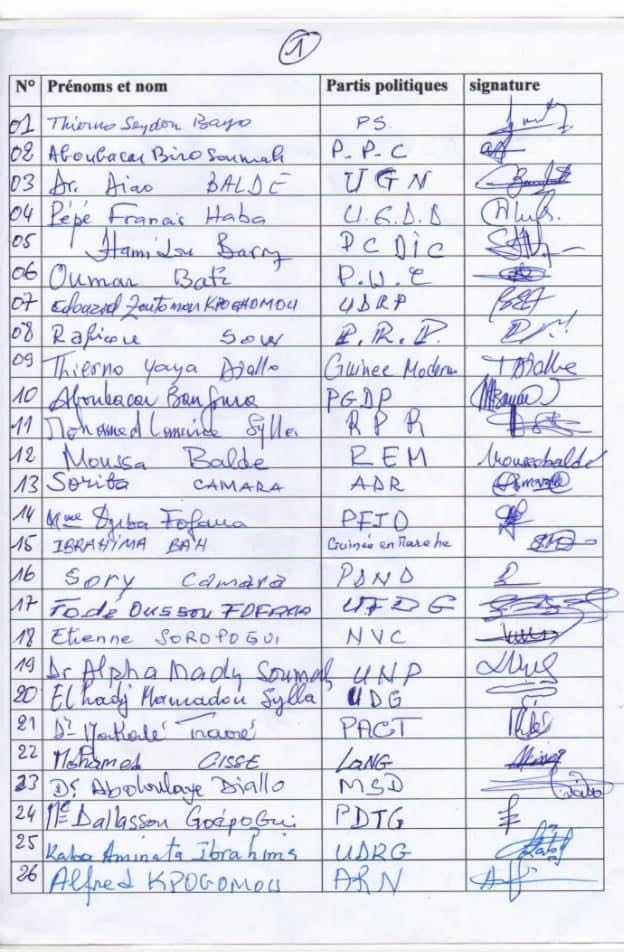 1
N° Prénoms et nom Partis politiques signature
01 Thierno Seydou Bayo PS.
02 Aboubacar Biro Soumah P-P-C
03 Dr. BALDE UGN
04 Pépé Francis Haba U.G.D.D
05 Hamidou Barry PCDIC
06 Oumar
07 Edouard Zoutoman KPOGHOMOU UDRP
08 Sow
09 Thierno Yaya Diallo Guinee Moderne TDiallo
10 Aboubacar Bangoura PGDP
11 Mohamed Sylla RPR
12 Moussa Balde REM Moussabaldé
13 Soriba CAMARA ADR
14 Mme Fofana
15 IBRAHIMA BAH Guinée en Marche
16 Sory Camara
17 Fodé OUSSOU FOFANA UFDG
18 Etienne SOROPOGUI NVC
19 Dr Alpha Mady Soumah UNP
20 Elhadj Mamadou Sylla UDG
21 Dr Traoré PACT
22 Mohamed CISSE
23 Dr Abdoulaye Diallo MSD
24 Me Dallasson Goépogui PDTG
25 Kaba Aminata Ibrahima UDRG
26 Alfred KPOGOMOU ARN